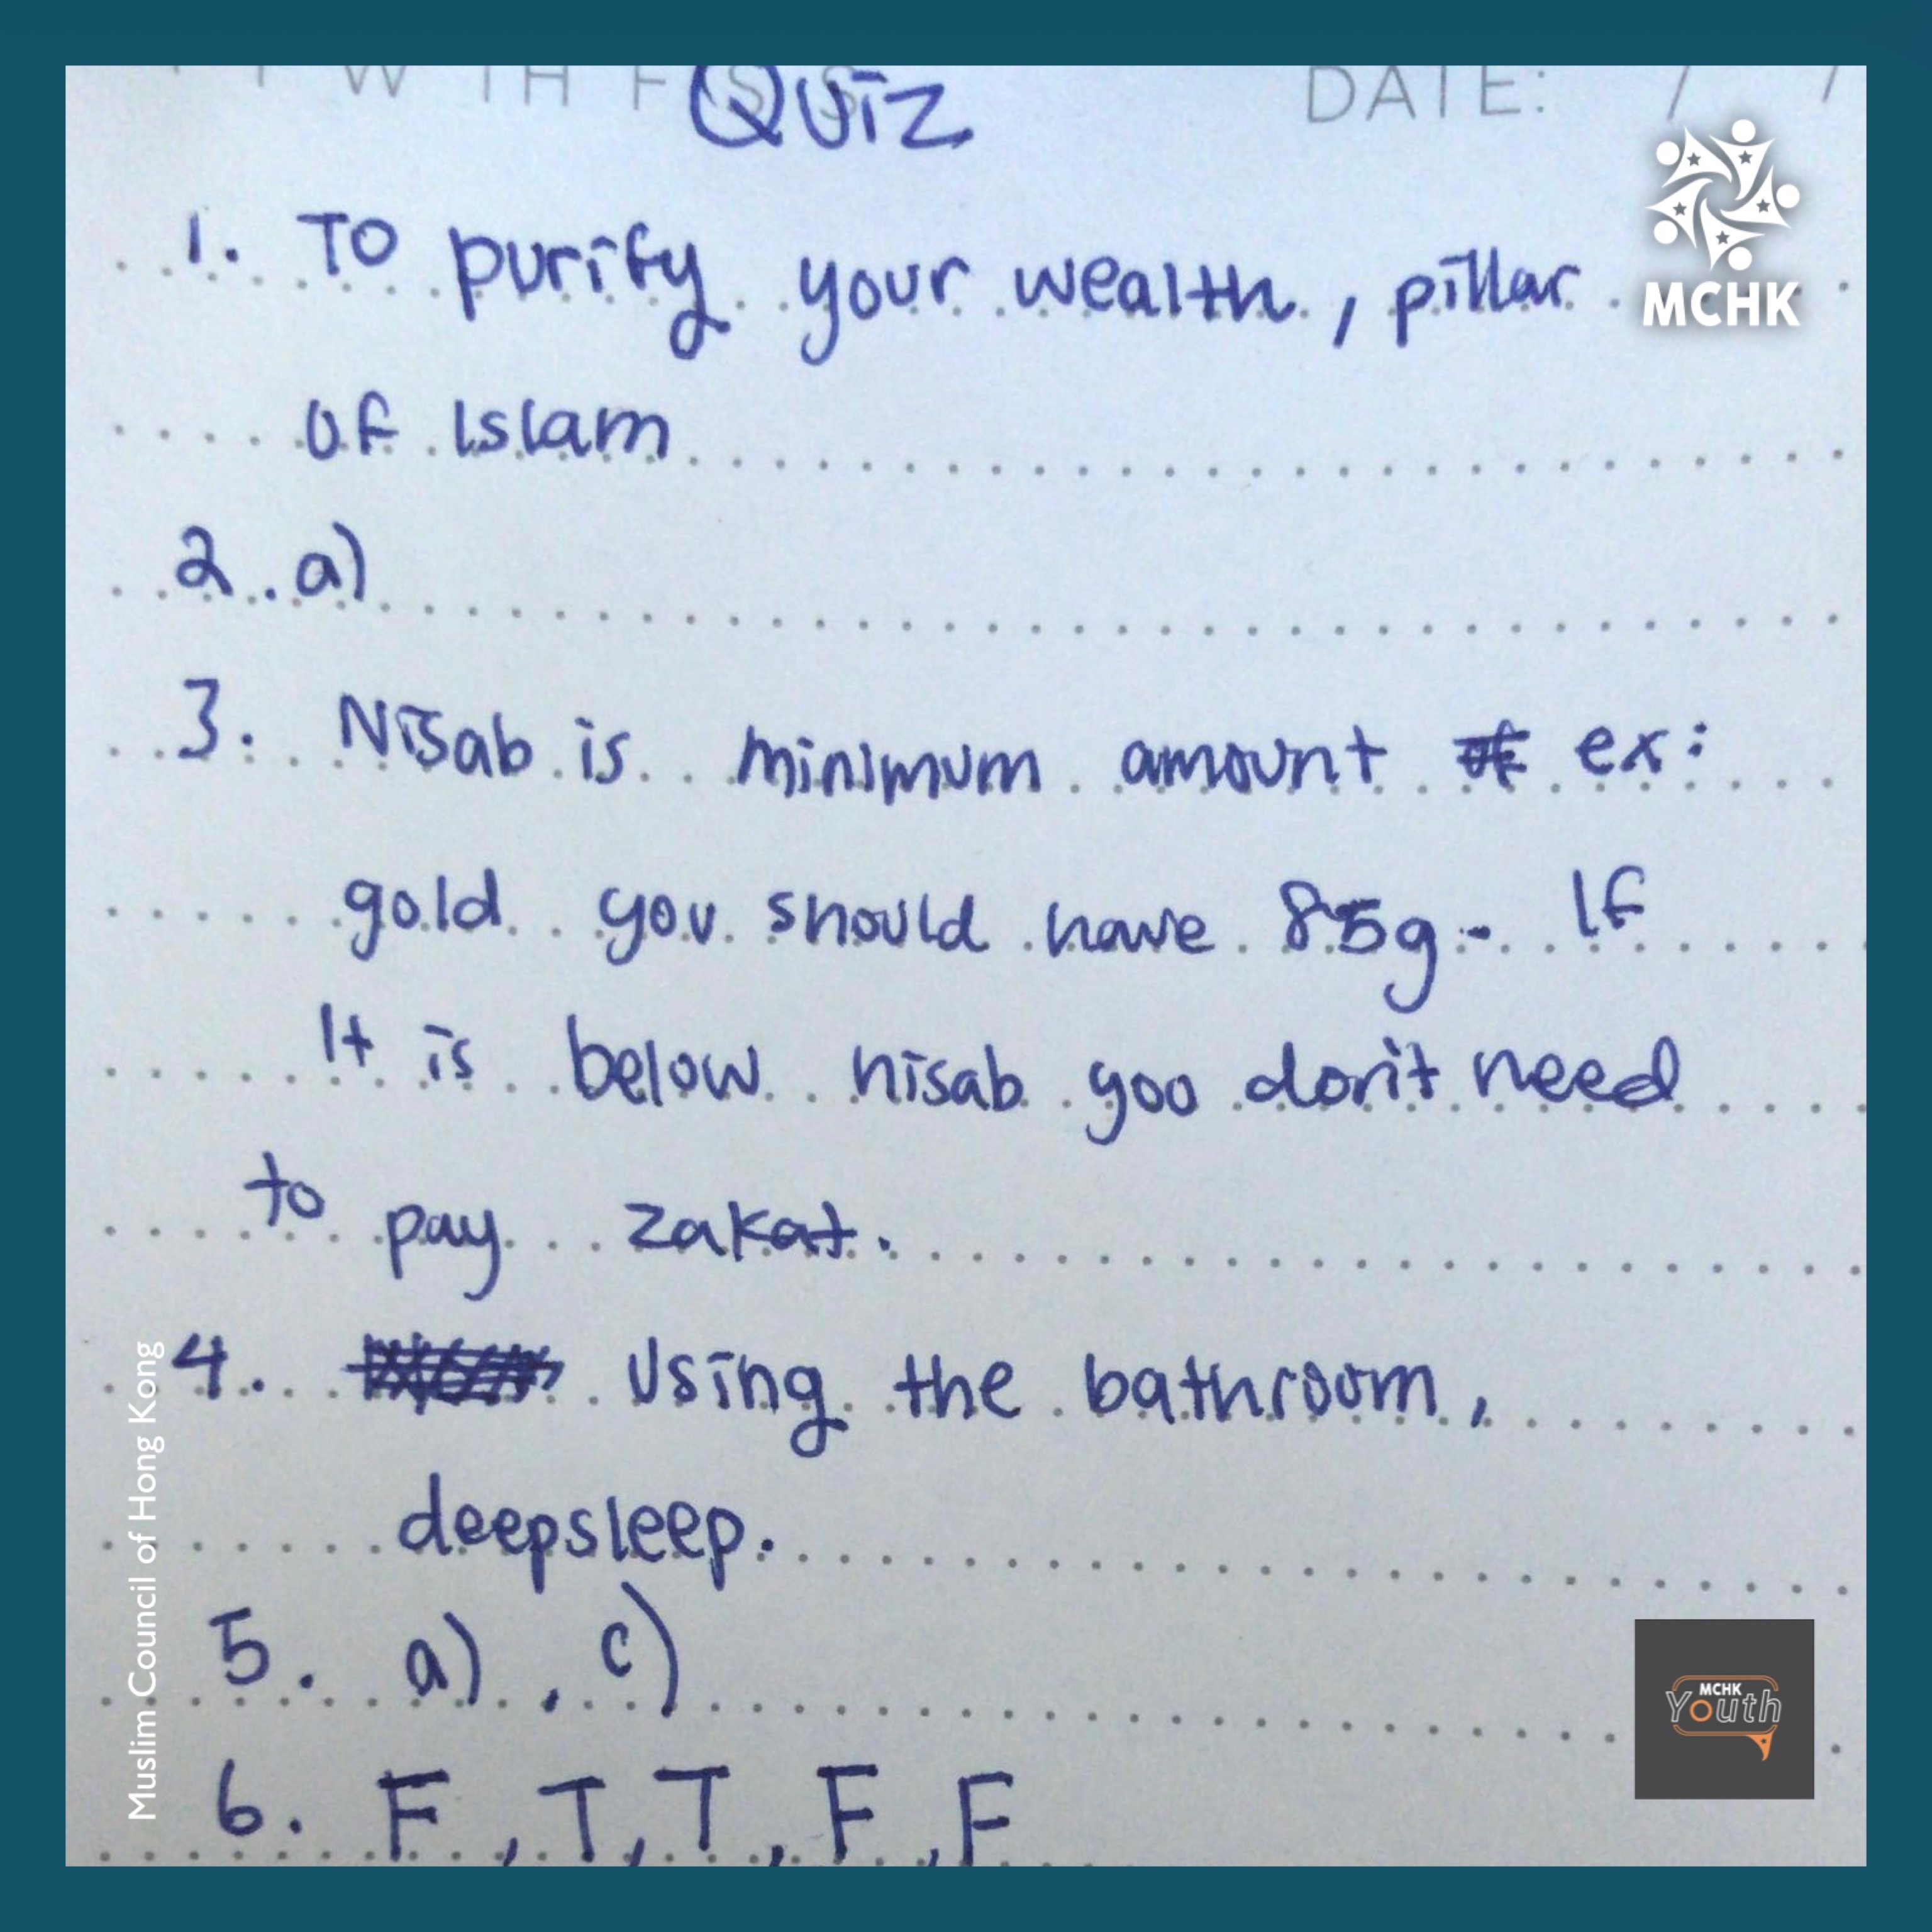 T W TH F S S
QUIZ
DATE: / /
MCHK
1. To purify your wealth, pillar
of Islam
2. a)
3. Nisab is minimum amount ex:
gold you should have 85g. If
It is below nisab you don't need
to pay zakat.
4. Using the bathroom,
deepsleep.
5. a), c)
6. F, T, T, F, F
Muslim Council of Hong Kong
MCHK
Youth